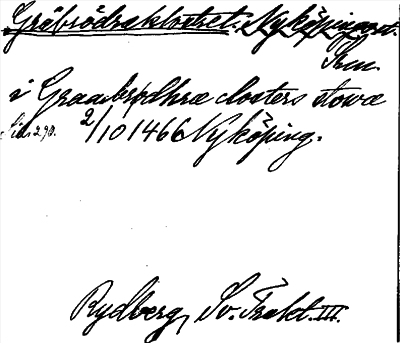 Gråbrödraklostret. Nyköping
Sm.
i Graabrødhræ closters stowæ
Sid. 290. 2/10 1466 Nyköping.
Rydberg, Sv. Trakt. III.